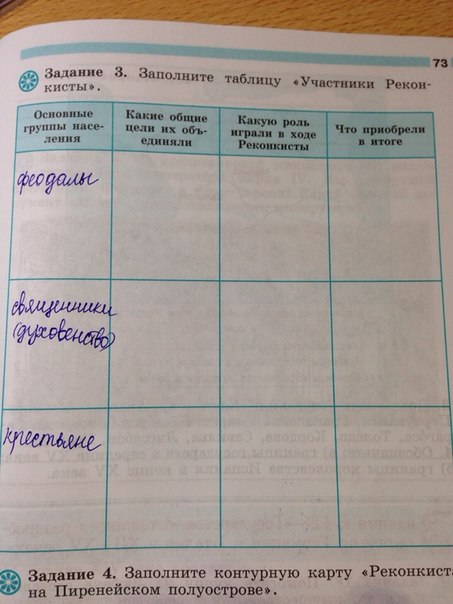 73
Задание 3. Заполните таблицу «Участники Рекон-
кисты».
Основные
группы насе-
ления
Какие общие
цели их объ-
единяли
Какую роль
играли в ходе
Реконкисты
Что приобрели
в итоге
феодалы
священники
(духовенство)
крестьяне
Задание 4. Заполните контурную карту «Реконкиста
на Пиренейском полуострове».